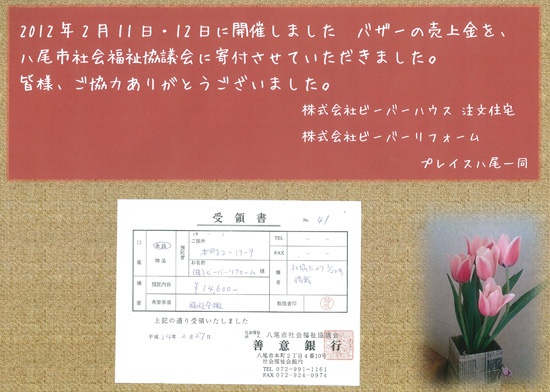 2012年2月11日・12日に開催しました　バザーの売上金を、
八尾市社会福祉協議会に寄付させていただきました。
皆様、ご協力ありがとうございました。
株式会社ビーバーハウス 注文住宅
株式会社ビーバーリフォーム
プレイス八尾一同
受領書
No. 41
口座
物品
預託者
ご住所
本町2-13-9
お名前
(株)ビーバーリフォーム 様
TEL
FAX
備考
摘要
預託内容
¥14,600-
希望事項
取扱者印
上記の通り受領いたしました
平成 24年 2月 27日
社会福祉法人 八尾市社会福祉協議会
善意銀行
八尾市本町2丁目4番10号
社会福祉会館内
TEL 072-991-1161
FAX 072-924-0974